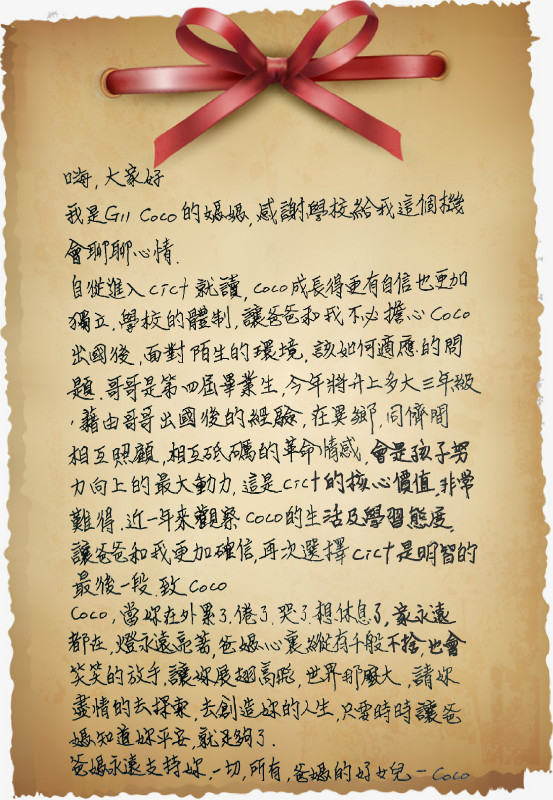 嗨,大家好
我是G11 Coco的媽媽,感謝學校給我這個機
會聊聊心情.
自從進入cict就讀,coco成長得更有自信也更加
獨立,學校的體制,讓爸爸和我不必擔心Coco
出國後,面對陌生的環境,該如何適應的問
題.哥哥是第四屆畢業生,今年將升上多大三年級
,藉由哥哥出國後的經驗,在異鄉,同儕間
相互照顧,相互砥礪的革命情感,會是孩子努
力向上的最大動力,這是cict的核心價值,非常
難得.近一年來觀察Coco的生活及學習態度,
讓爸爸和我更加確信,再次選擇cict是明智的
最後一段.致Coco
Coco,當妳在外累了.倦了.哭了.想休息了,家永遠
都在,燈永遠亮著,爸媽心裏縱有千般不捨,也會
笑笑的放手,讓妳展翅高飛,世界那麼大,請妳
盡情的去探索,去創造妳的人生,只要時時讓爸
媽知道妳平安,就足夠了.
爸媽永遠支持妳,一切,所有,爸媽的好女兒-Coco